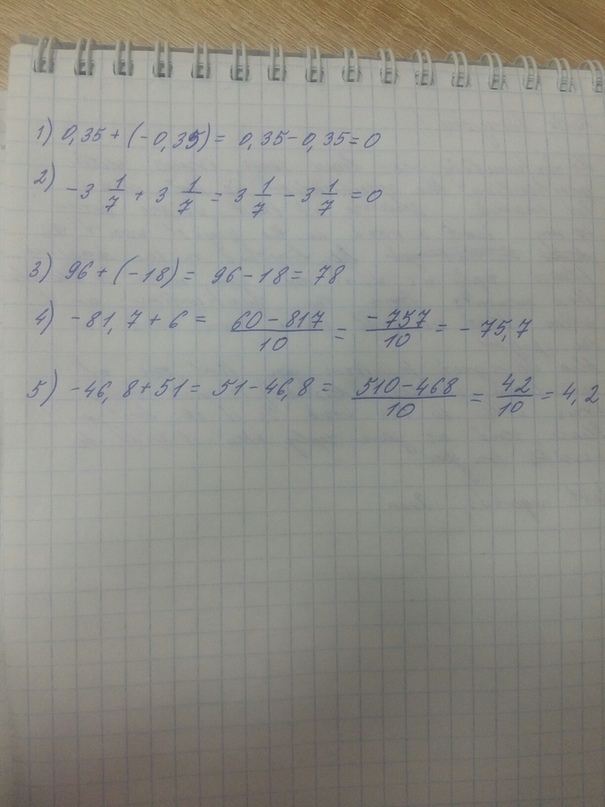 1) 0,35 + (-0,35) = 0,35 - 0,35 = 0
2) -3 1/7 + 3 1/7 = 3 1/7 - 3 1/7 = 0
3) 96 + (-18) = 96 - 18 = 78
4) -81,7 + 6 = (60 - 817)/10 = (-757)/10 = -75,7
5) -46,8 + 51 = 51 - 46,8 = (510 - 468)/10 = 42/10 = 4,2